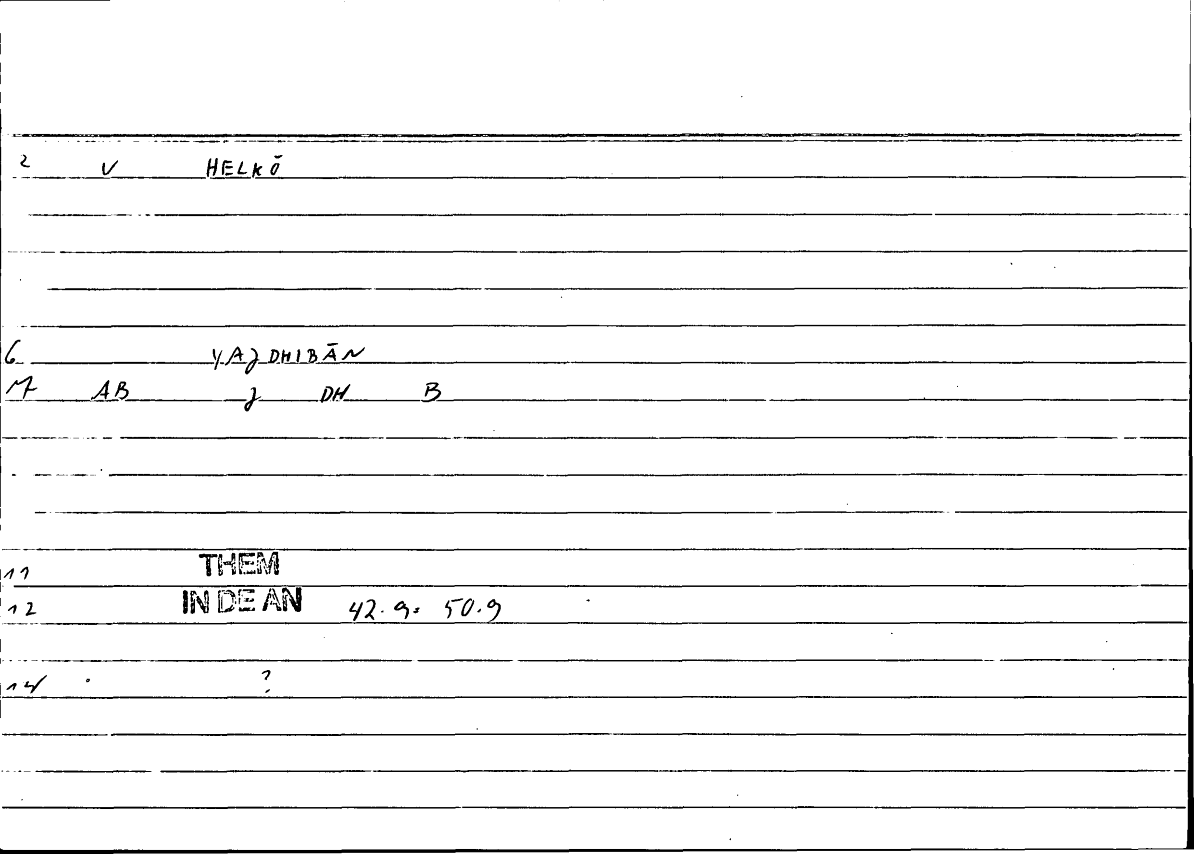 2 V HELKŌ
6 YAJDHIBĀN
M AB J DH B
11 THEM
12 IN DE AN 42.9: 50.9
14 ?